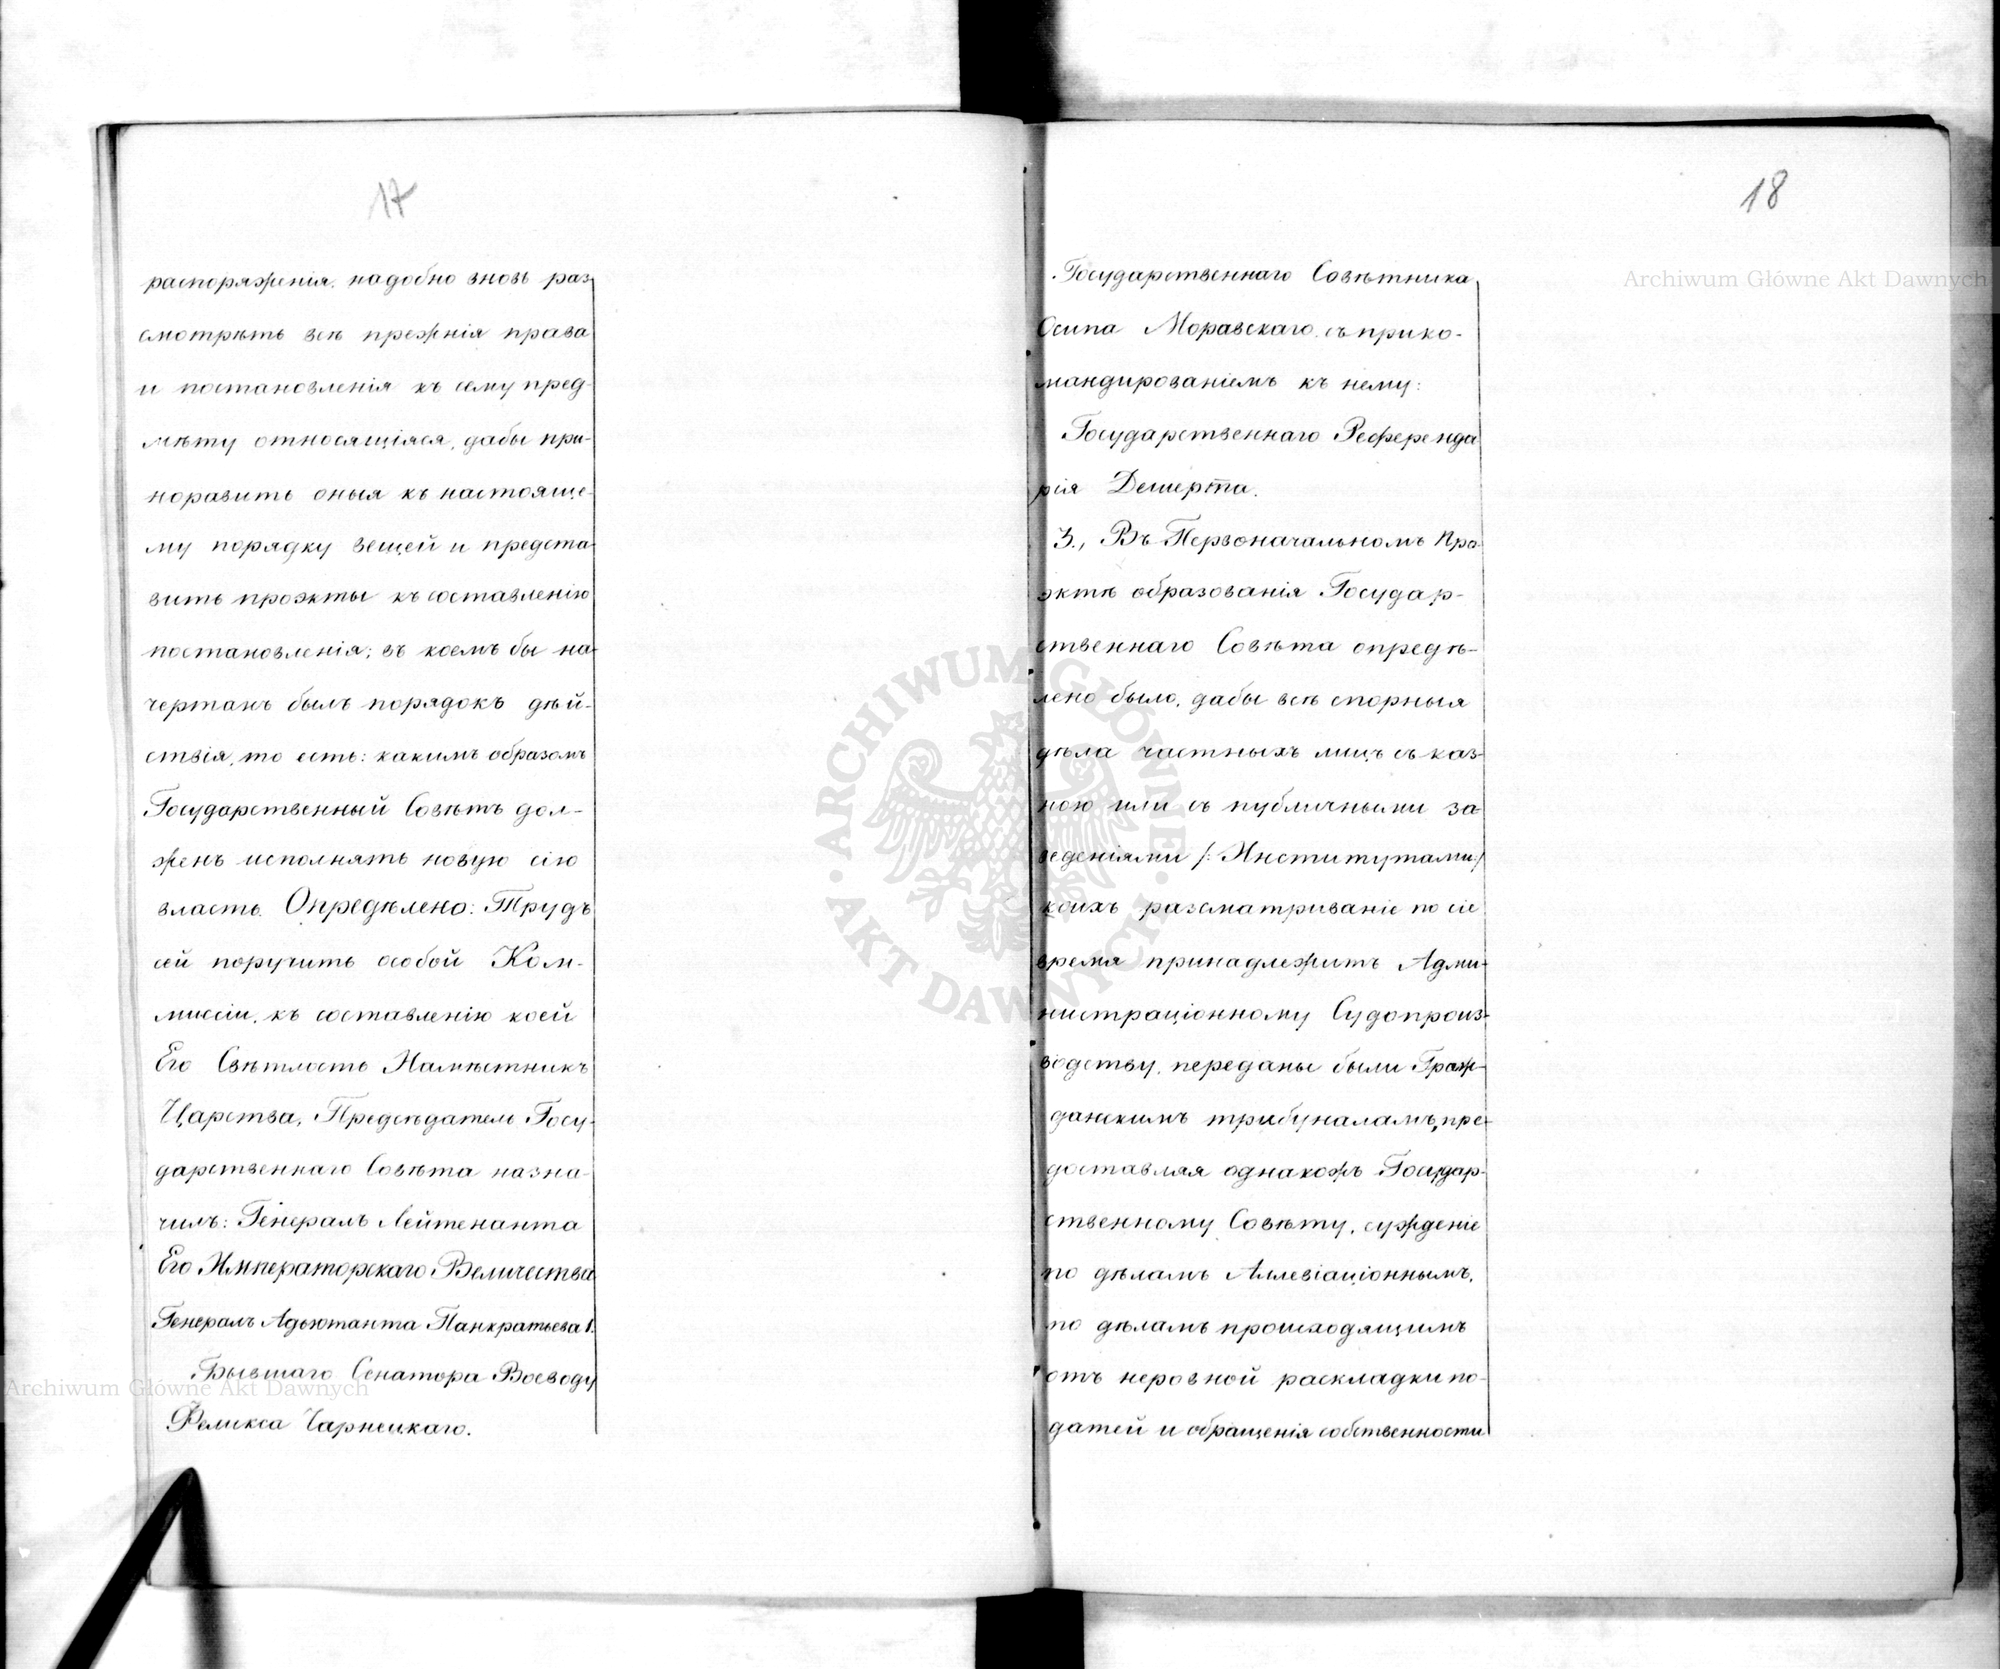 17
распоряженія, надобно вновь раз-
смотрѣть всѣ прежнія права
и постановленія къ сему пред-
мѣту относящіяся, дабы при-
норавить оныя къ настояще-
му порядку вещей и предста-
вить проэкты къ составленію
постановленія; въ коемъ бы на-
чертанъ былъ порядокъ дѣй-
ствія, то есть: какимъ образомъ
Государственный Совѣтъ дол-
женъ исполнять новую сію
власть. Опредѣлено: Трудъ
сей поручить особой Ком-
миссіи, къ составленію коей
Его Свѣтлость Намѣстникъ
Царства, Предсѣдатель Госу-
дарственнаго Совѣта назна-
чилъ: Генералъ Лейтенанта
Его Императорскаго Величества
Генералъ Адьютанта Панкратьева 1.
Бывшаго Сенатора Воеводу
Феликса Чарнецкаго.
18
Государственнаго Совѣтника
Осипа Моравскаго, съ прико-
мандированіемъ къ нему:
Государственнаго Референда
рія Дешерта.
3., Въ Первоначальномъ Про-
эктѣ образованія Государ-
ственнаго Совѣта опредѣ-
лено было, дабы всѣ спорныя
дѣла частныхъ лицъ съ каз-
ною или съ публичными за-
веденіями /: Институтами :/
коихъ разсматриваніе по сіе
время принадлежитъ Адми-
нистраціонному Судопроиз-
водству, переданы были Граж-
данскимъ трибуналамъ, пре-
доставляя однакожъ Государ-
ственному Совѣту, сужденіе
по дѣламъ Аллевіаціоннымъ,
по дѣламъ происходящимъ
отъ неровной раскладки по-
датей и обращенія собственности
Archiwum Główne Akt Dawnych
Archiwum Główne Akt Dawnych
ARCHIWUM GŁÓWNE AKT DAWNYCH